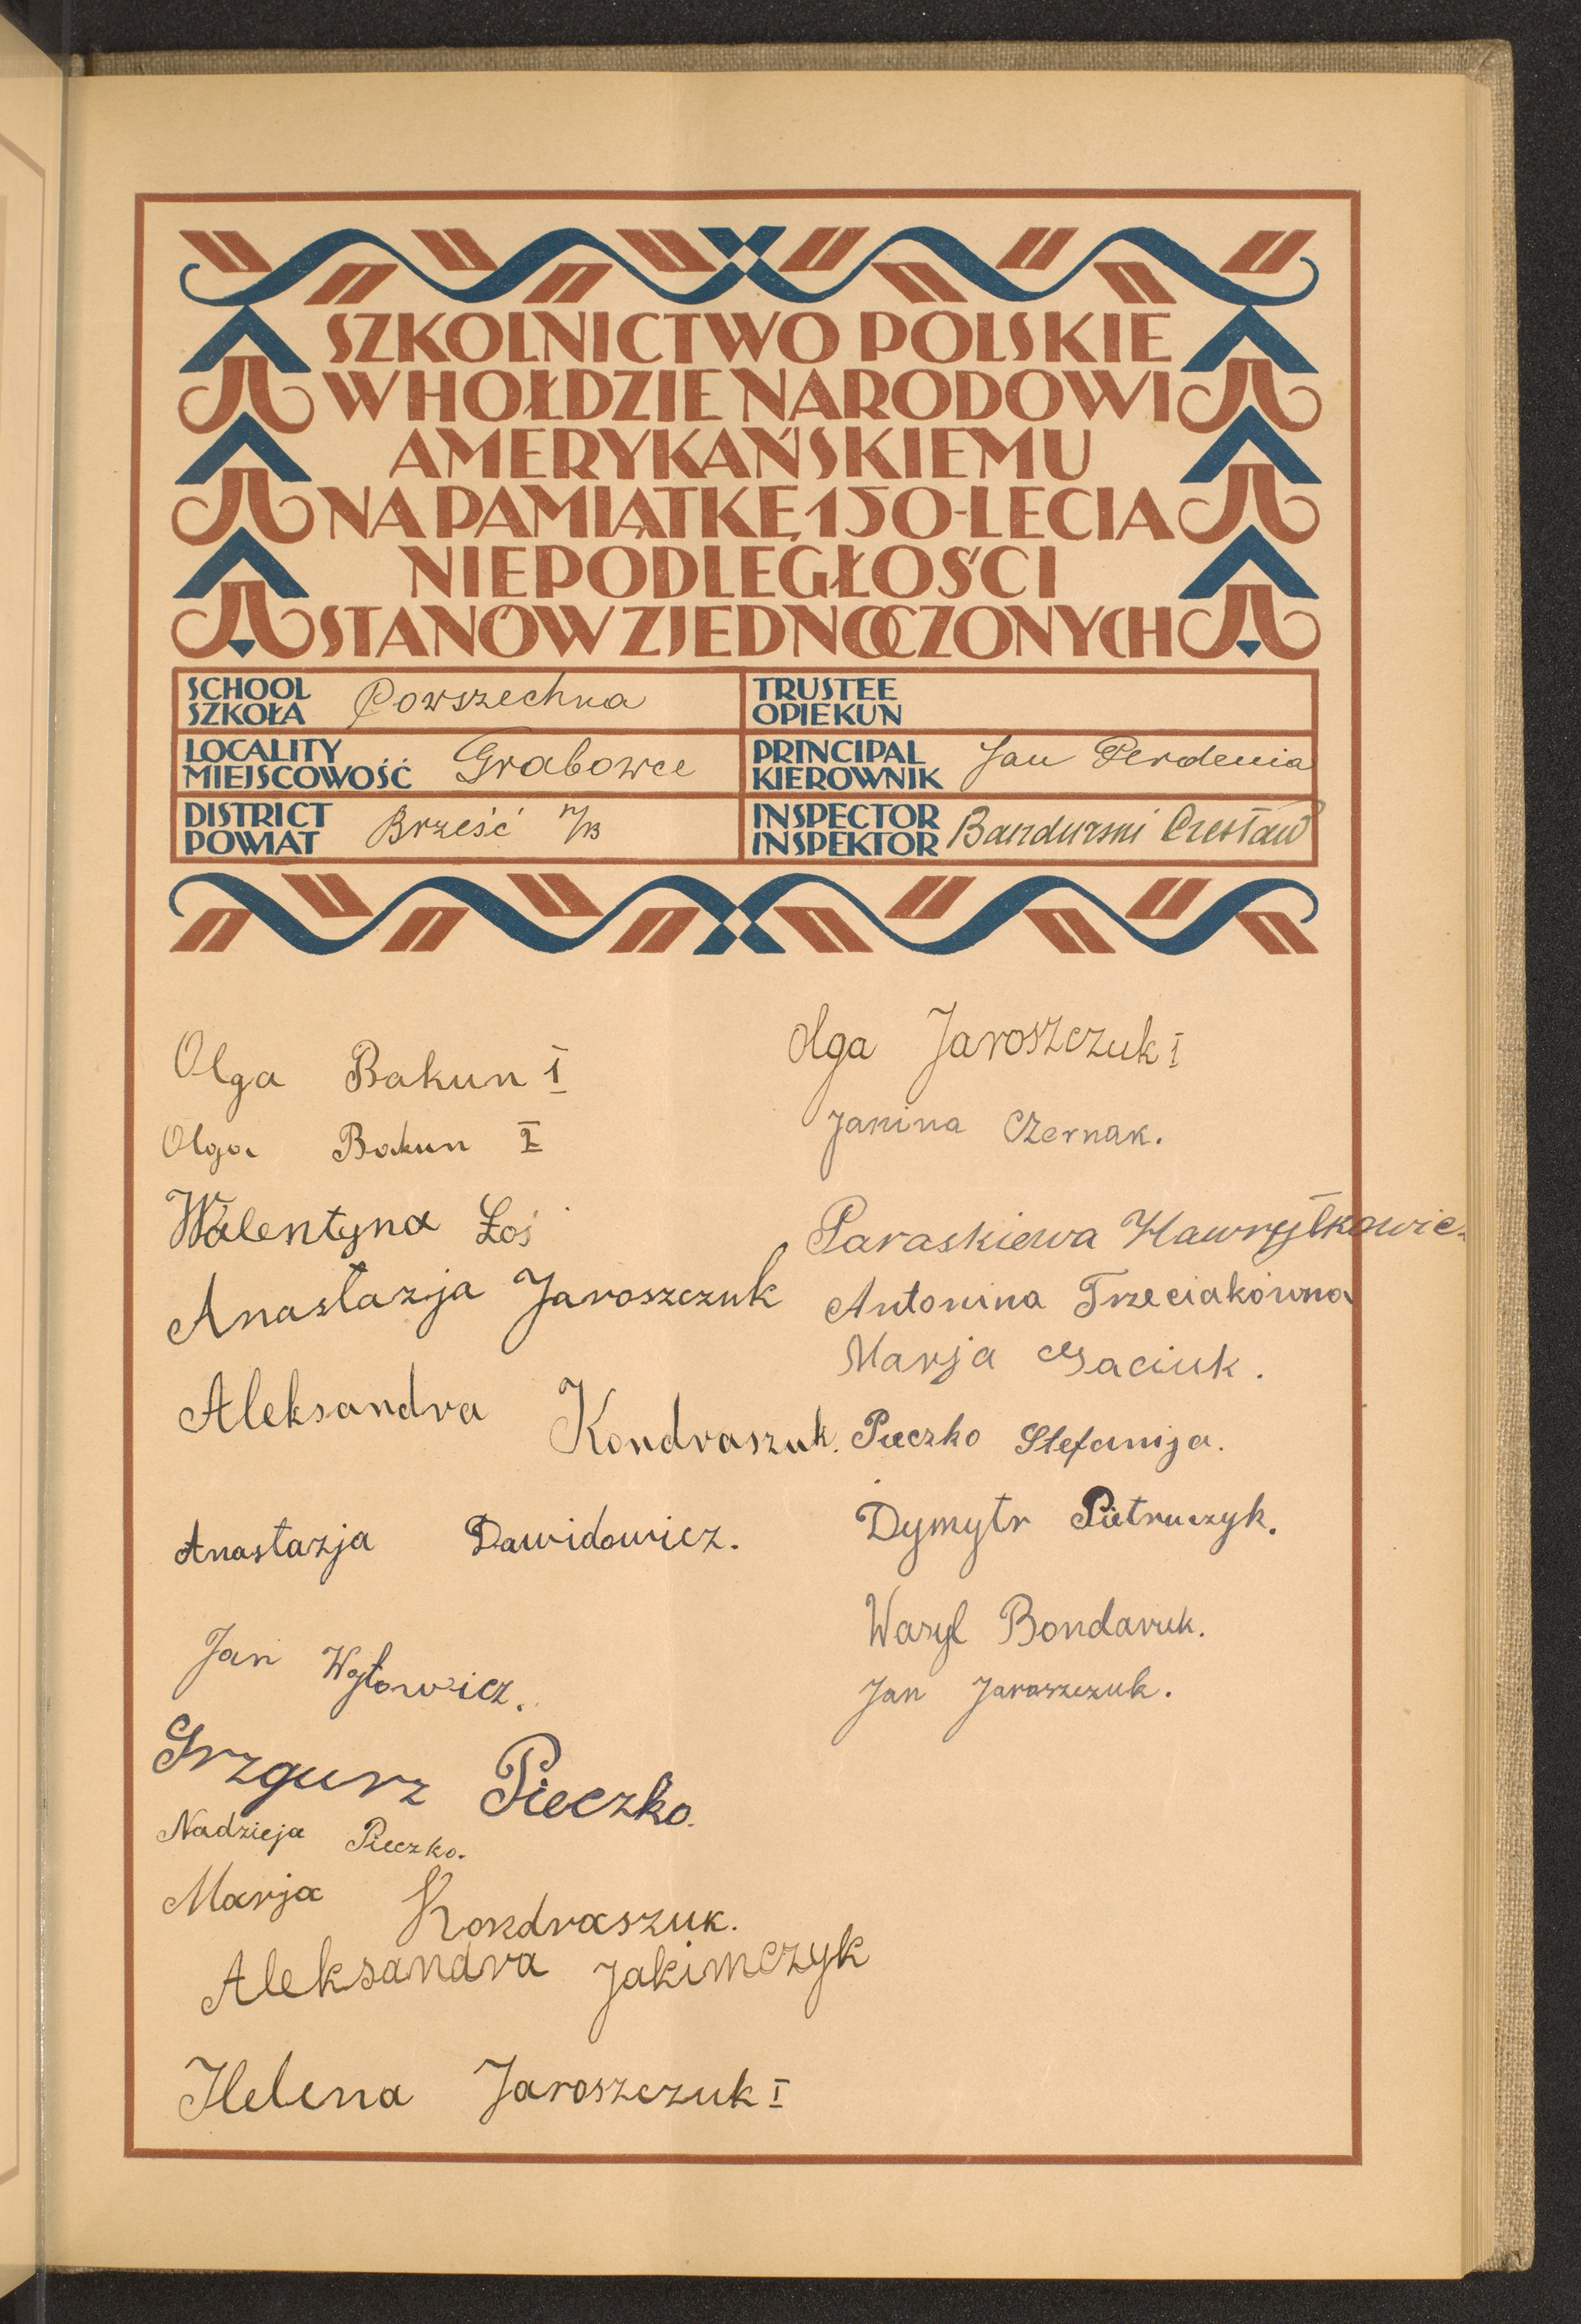 SZKOLNICTWO POLSKIE
W HOŁDZIE NARODOWI
AMERYKAŃSKIEMU
NA PAMIĄTKĘ 150-LECIA
NIEPODLEGŁOŚCI
STANÓW ZJEDNOCZONYCH
SCHOOL
SZKOŁA Powszechna
LOCALITY
MIEJSCOWOŚĆ Grabowce
DISTRICT
POWIAT Brześć n/B
TRUSTEE
OPIEKUN
PRINCIPAL
KIEROWNIK Jan Perdenia
INSPECTOR
INSPEKTOR Bandurski Czesław
Olga Bakun I
Olga Bakun II
Walentyna Łoś
Anastazja Jaroszczuk
Aleksandra Kondraszuk.
Anastazja Dawidowicz.
Jan Wojtowicz.
Grzgurz Pieczko.
Nadzieja Pieczko.
Marja Kondraszuk.
Aleksandra Jakimczyk
Helena Jaroszczuk I
Olga Jaroszczuk I
Janina Czernak.
Paraskiewa Hawryłkowic
Antonina Trzeciakówna
Marja Gaciuk.
Pieczko Stefanija.
Dymytr Pietruczyk.
Wasyl Bondaruk.
Jan Jaroszczuk.